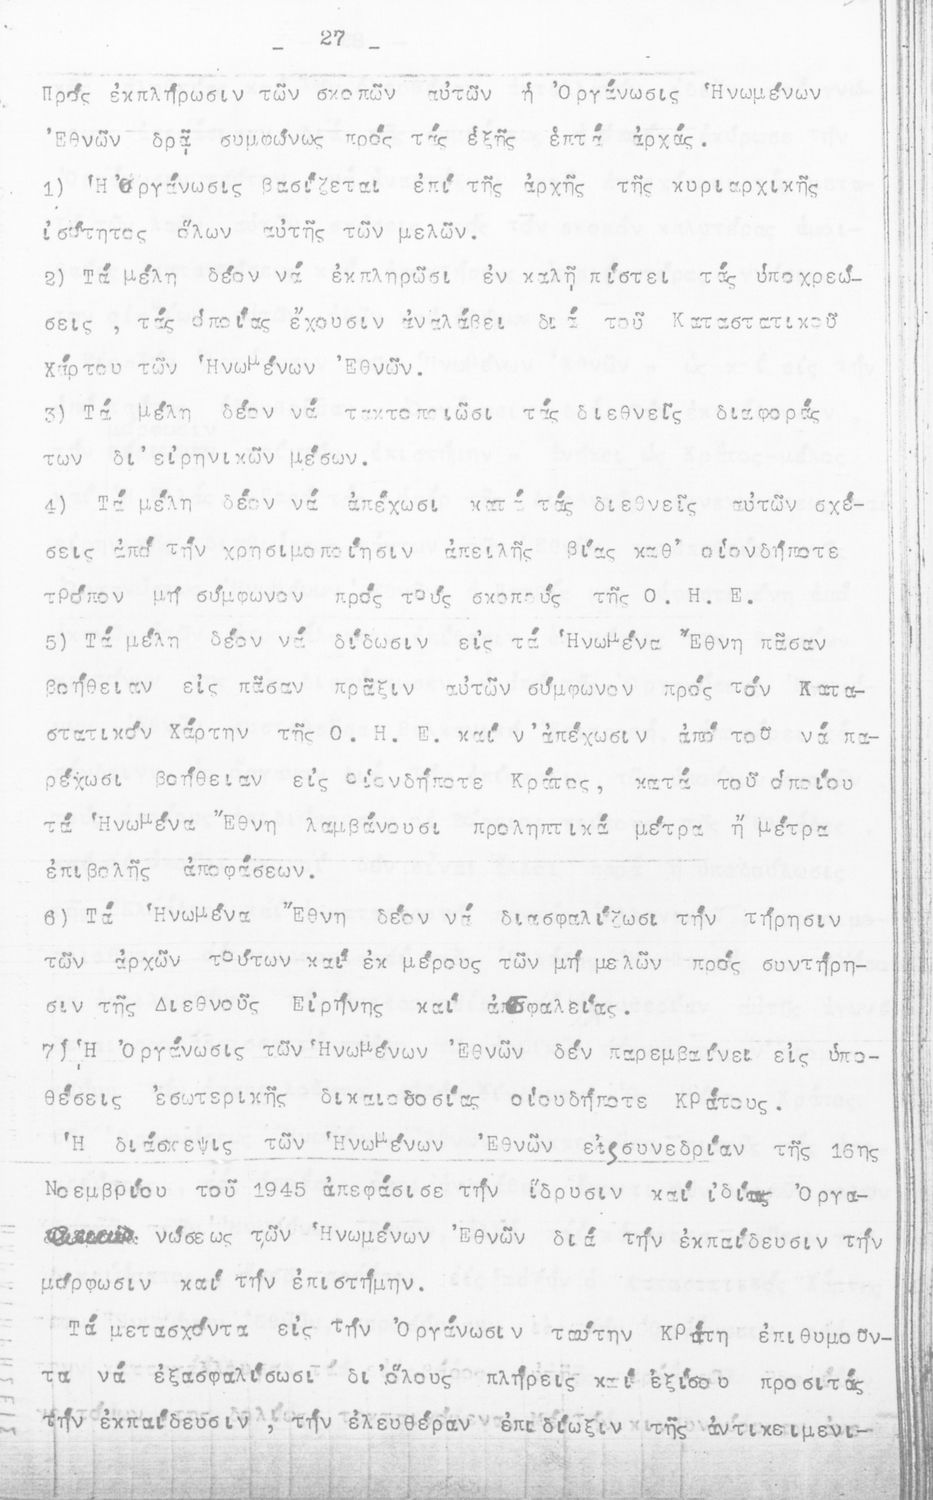 _ 27 _
Πρός ἐκπλήρωσιν τῶν σκοπῶν αὐτῶν ἡ Ὀργάνωσις Ἡνωμένων
Ἐθνῶν δρᾷ συμφώνως πρός τάς ἑξῆς ἑπτά ἀρχάς.
1) Ἡ Ὀργάνωσις βασίζεται ἐπί τῆς ἀρχῆς τῆς κυριαρχικῆς
ἰσότητος ὅλων αὐτῆς τῶν μελῶν.
2) Τά μέλη δέον νά ἐκπληρῶσι ἐν καλῇ πίστει τάς ὑποχρεώ-
σεις , τάς ὁποίας ἔχουσιν ἀναλάβει διά τοῦ Καταστατικοῦ
Χάρτου τῶν Ἡνωμένων Ἐθνῶν.
3) Τά μέλη δέον νά τακτοποιῶσι τάς διεθνεῖς διαφοράς
των δι'εἰρηνικῶν μέσων.
4) Τά μέλη δέον νά ἀπέχωσι κατά τάς διεθνεῖς αὐτῶν σχέ-
σεις ἀπό τήν χρησιμοποίησιν ἀπειλῆς βίας καθ' οἱονδήποτε
τρόπον μή σύμφωνον πρός τούς σκοπούς τῆς Ο. Η. Ε.
5) Τά μέλη δέον νά δίδωσιν εἰς τά Ἡνωμένα Ἔθνη πᾶσαν
βοήθειαν εἰς πᾶσαν πρᾶξιν αὐτῶν σύμφωνον πρός τόν Κατα-
στατικόν Χάρτην τῆς Ο. Η. Ε. καί ν'ἀπέχωσιν ἀπό τοῦ νά πα-
ρέχωσι βοήθειαν εἰς οἱονδήποτε Κράτος, κατά τοῦ ὁποίου
τά Ἡνωμένα Ἔθνη λαμβάνουσι προληπτικά μέτρα ἤ μέτρα
ἐπιβολῆς ἀποφάσεων.
6) Τά Ἡνωμένα Ἔθνη δέον νά διασφαλίζωσι τήν τήρησιν
τῶν ἀρχῶν τούτων καί ἐκ μέρους τῶν μή μελῶν πρός συντήρη-
σιν τῆς Διεθνοῦς Εἰρήνης καί ἀσφαλείας.
7) Ἡ Ὀργάνωσις τῶν Ἡνωμένων Ἐθνῶν δέν παρεμβαίνει εἰς ὑπο-
θέσεις ἐσωτερικῆς δικαιοδοσίας οἱουδήποτε Κράτους.
Ἡ διάσκεψις τῶν Ἡνωμένων Ἐθνῶν εἰς συνεδρίαν τῆς 16ης
Νοεμβρίου τοῦ 1945 ἀπεφάσισε τήν ἵδρυσιν καί ἰδίας Ὀργα-
νώσεως τῶν Ἡνωμένων Ἐθνῶν διά τήν ἐκπαίδευσιν τήν
μόρφωσιν καί τήν ἐπιστήμην.
Τά μετασχόντα εἰς τήν Ὀργάνωσιν ταύτην Κράτη ἐπιθυμοῦν-
τα νά ἐξασφαλίσωσι δι'ὅλους πλήρεις καί ἐξίσου προσιτάς
τήν ἐκπαίδευσιν , τήν ἐλευθέραν ἐπιδίωξιν τῆς ἀντικειμενι-